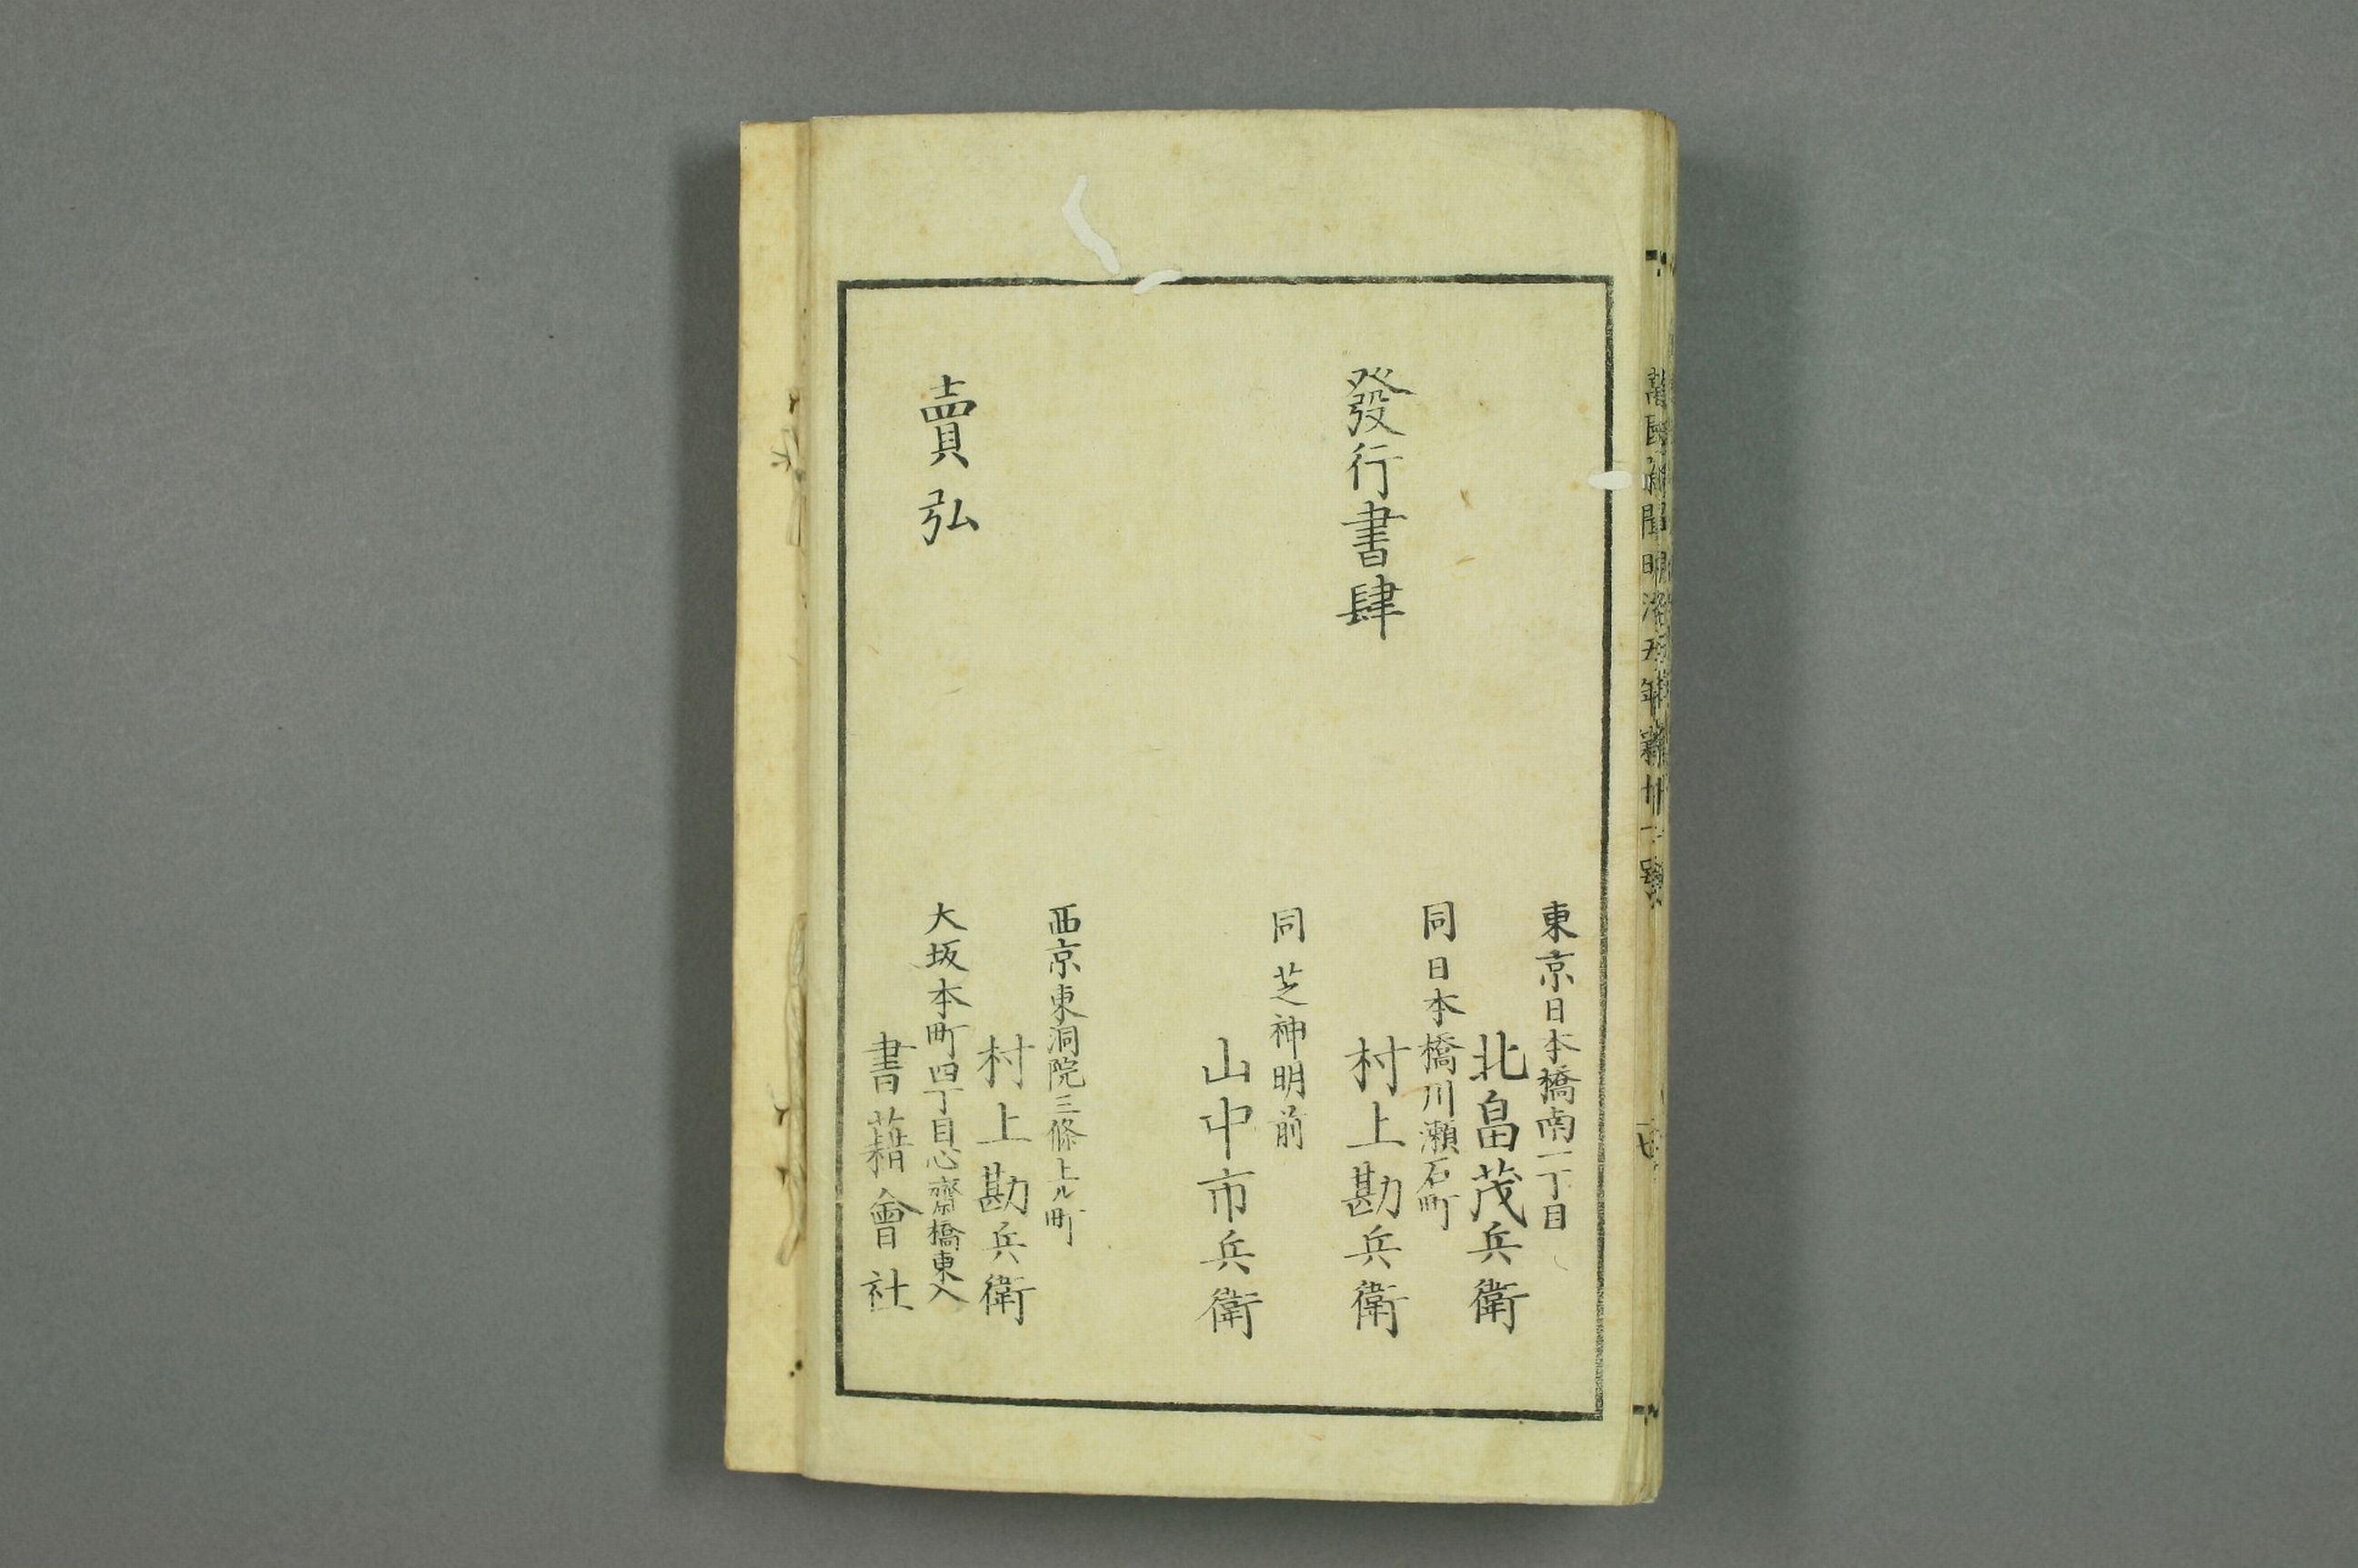 發行書肆
東京日本橋南一丁目
北畠茂兵衛
同日本橋川瀬石町
村上勘兵衛
同芝神明前
山中市兵衛
賣弘
西京東洞院三條上ル町
村上勘兵衛
大坂本町四丁目心齋橋東入
書藉會社